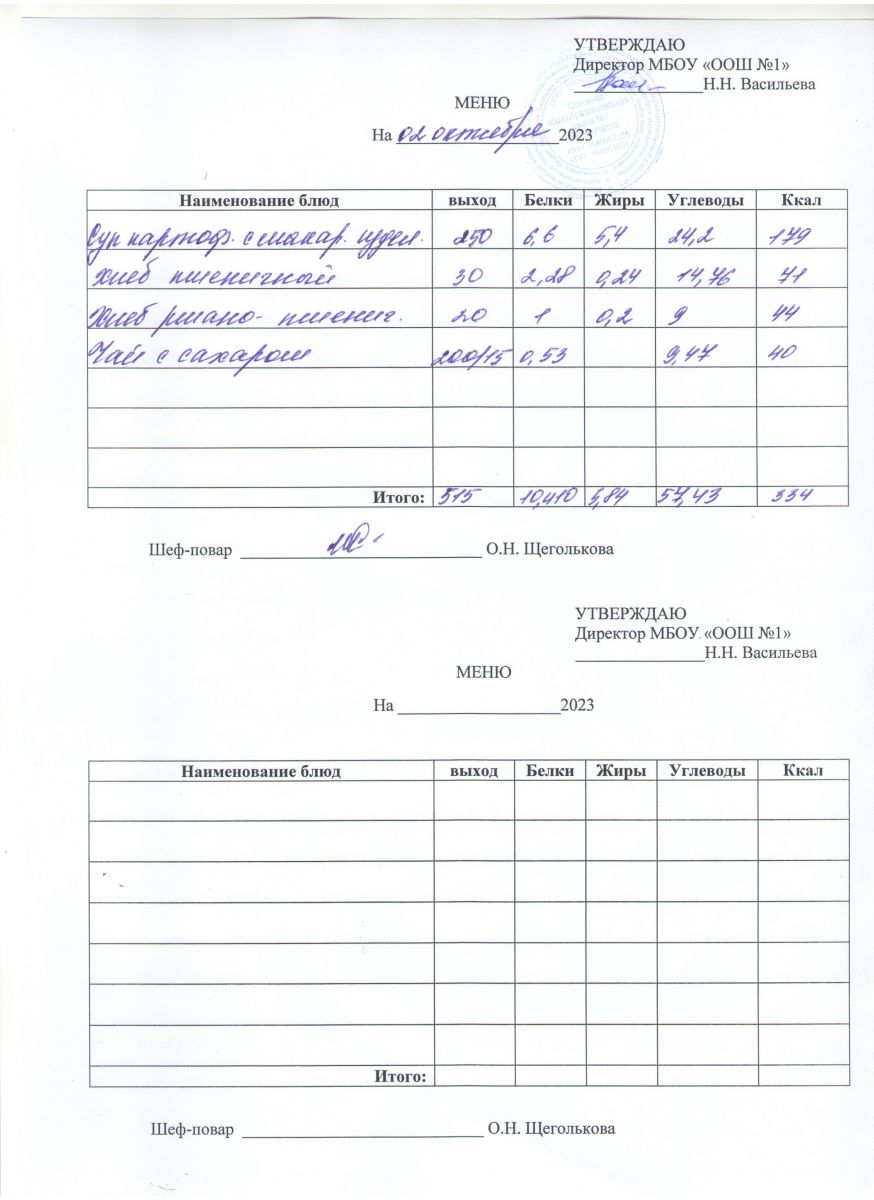 УТВЕРЖДАЮ
Директор МБОУ «ООШ №1»
Н.Н. Васильева
МЕНЮ
На 02 октября 2023
Наименование блюд выход Белки Жиры Углеводы Ккал
Суп картоф. с макар. издел. 250 6,6 5,4 24,2 179
Хлеб пшеничный 30 2,28 0,24 14,76 71
Хлеб ржано- пшенич. 20 1 0,2 9 44
Чай с сахаром 200/15 0,53 9,47 40
Итого: 515 10,410 5,84 57,43 334
Шеф-повар О.Н. Щеголькова
УТВЕРЖДАЮ
Директор МБОУ «ООШ №1»
Н.Н. Васильева
МЕНЮ
На 2023
Наименование блюд выход Белки Жиры Углеводы Ккал
Итого:
Шеф-повар О.Н. Щеголькова